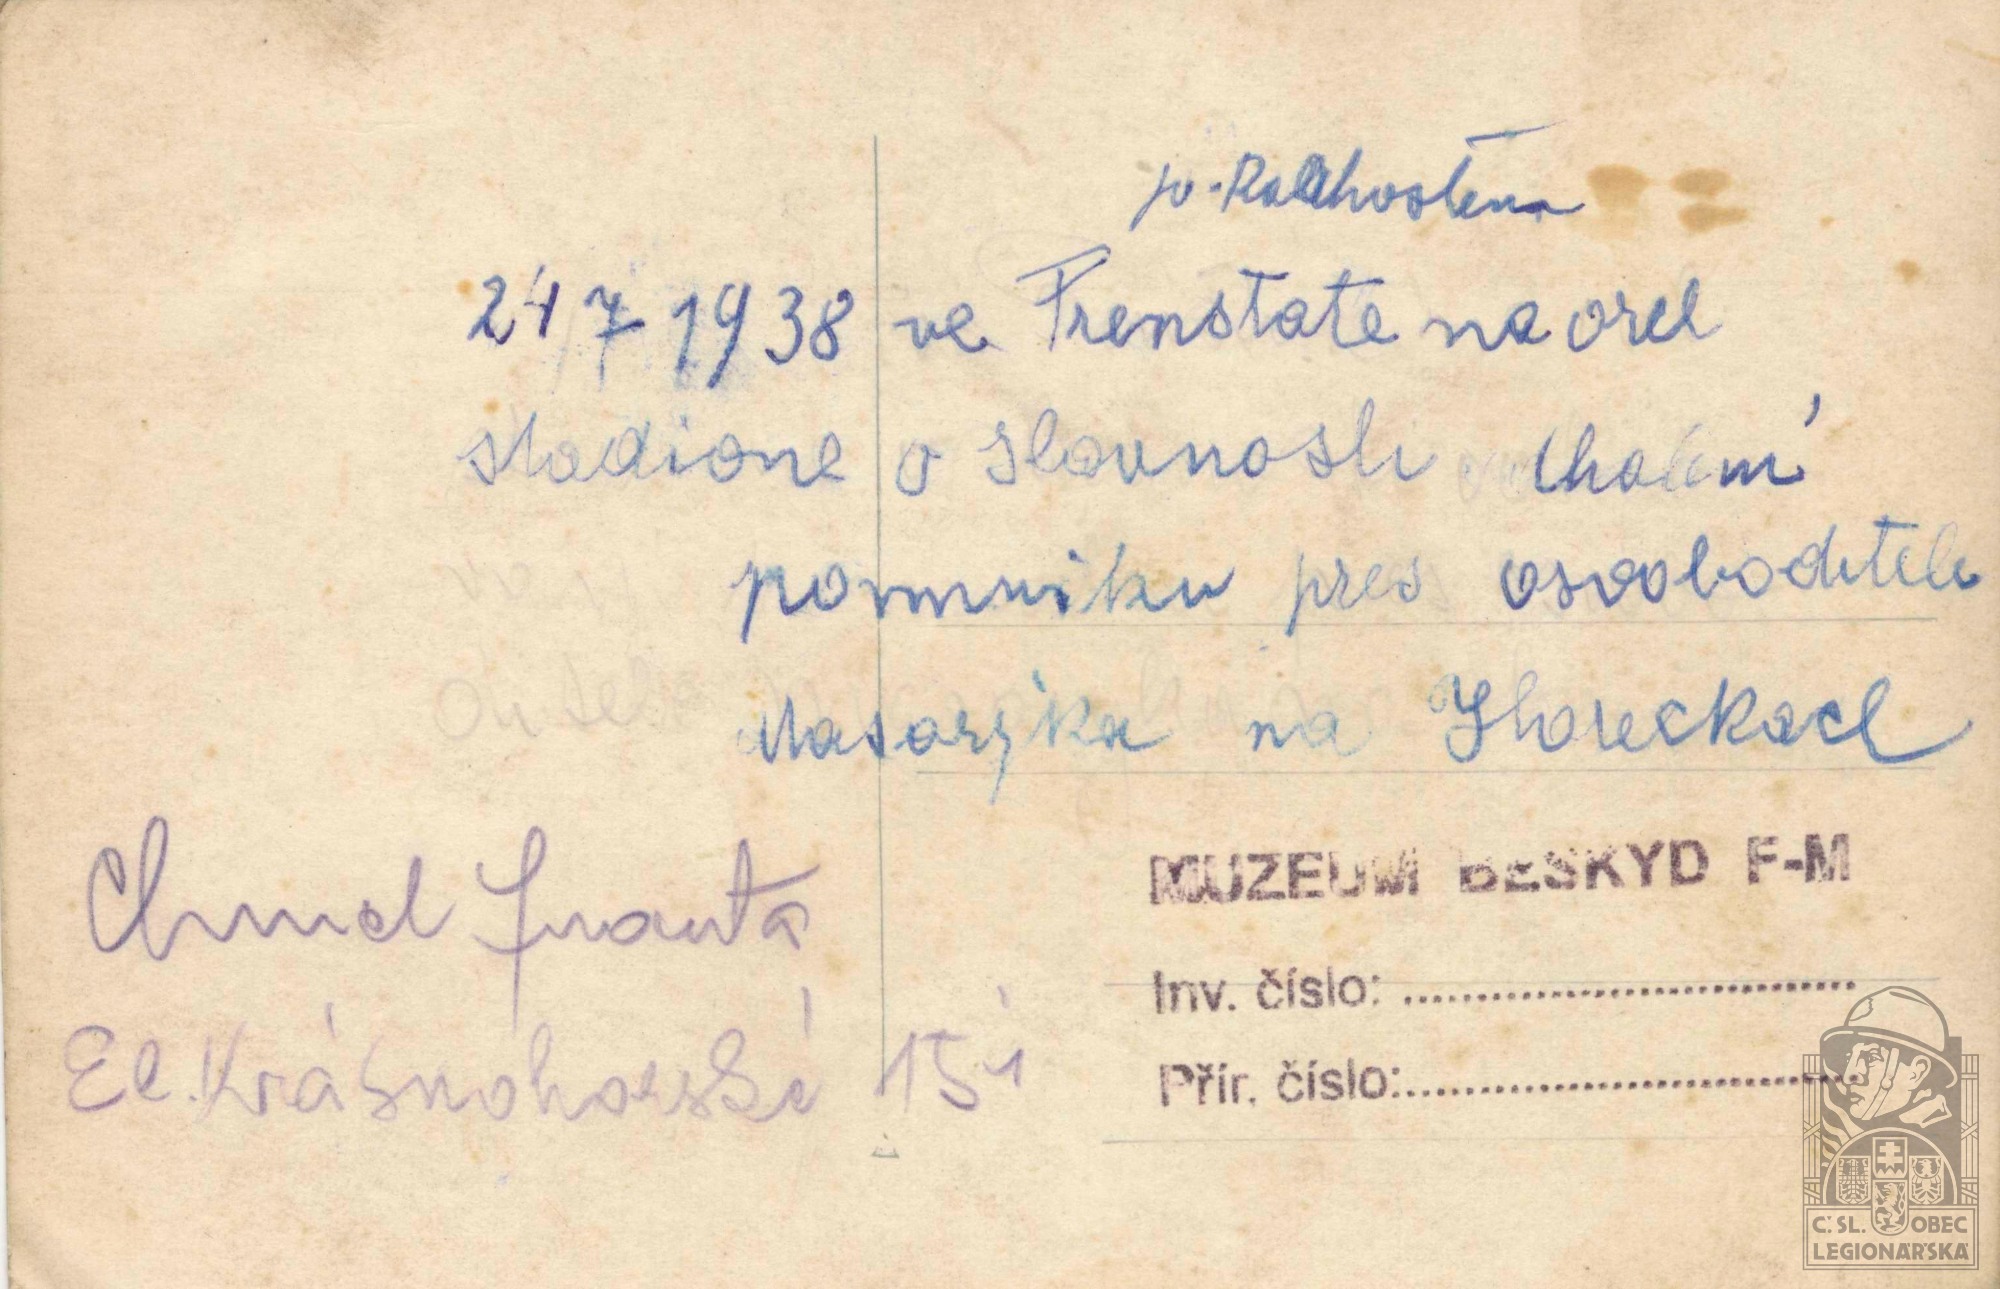 p. Radhoštěm
24 7 1938 ve Frenstate na orel
stadione o slavnosti
pomniku pres osvoboditele
Masaryka na Horeckach
Chmel Franta
El. Krásnohorské 151
MUZEUM BESKYD F-M
Inv. číslo:
Přír. číslo:
Č. SL. OBEC
LEGIONÁŘSKÁ